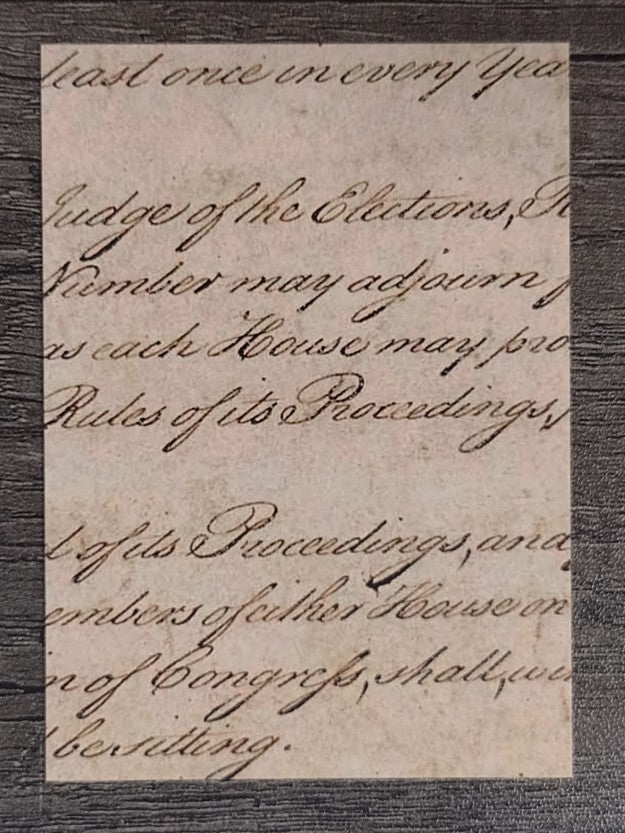 least once in every Yea
Judge of the Elections, R
Number may adjourn f
as each House may pro
Rules of its Proceedings,
l of its Proceedings, and
embers of either House on
n of Congreſs, shall, wi
be sitting.